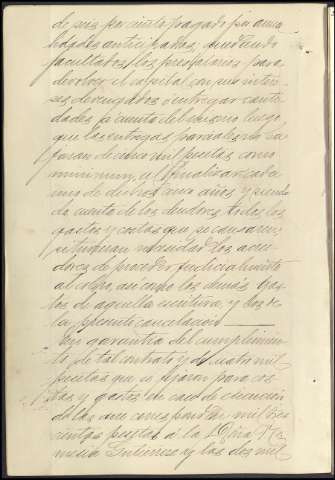 de seis por ciento pagado por anua
lidades anticipadas, quedando
facultados los prestatarios para
devolver el capital con sus intere-
ses devengados ó entregar canti-
dades á cuenta del mismo luego
que las entregas parciales no ba
jaran de una mil pesetas como
minimum, al finalizar cada
uno de dichos años y siendo
de cuenta de los deudores todos los
gastos y costas que se causaren
si tuvieran necesidad los acree
dores de proceder judicialmente
al cobro, así como los demás gas
tos de aquella escritura y los de
la presente cancelación
En garantía del cumplimien
to de tal contrato y de cuatro mil
pesetas que se fijaron para cos
tas y gastos en caso de ejecución
de las que corresponden mil tres
cientas pesetas á la Dña
Gutierrez y las dos mil